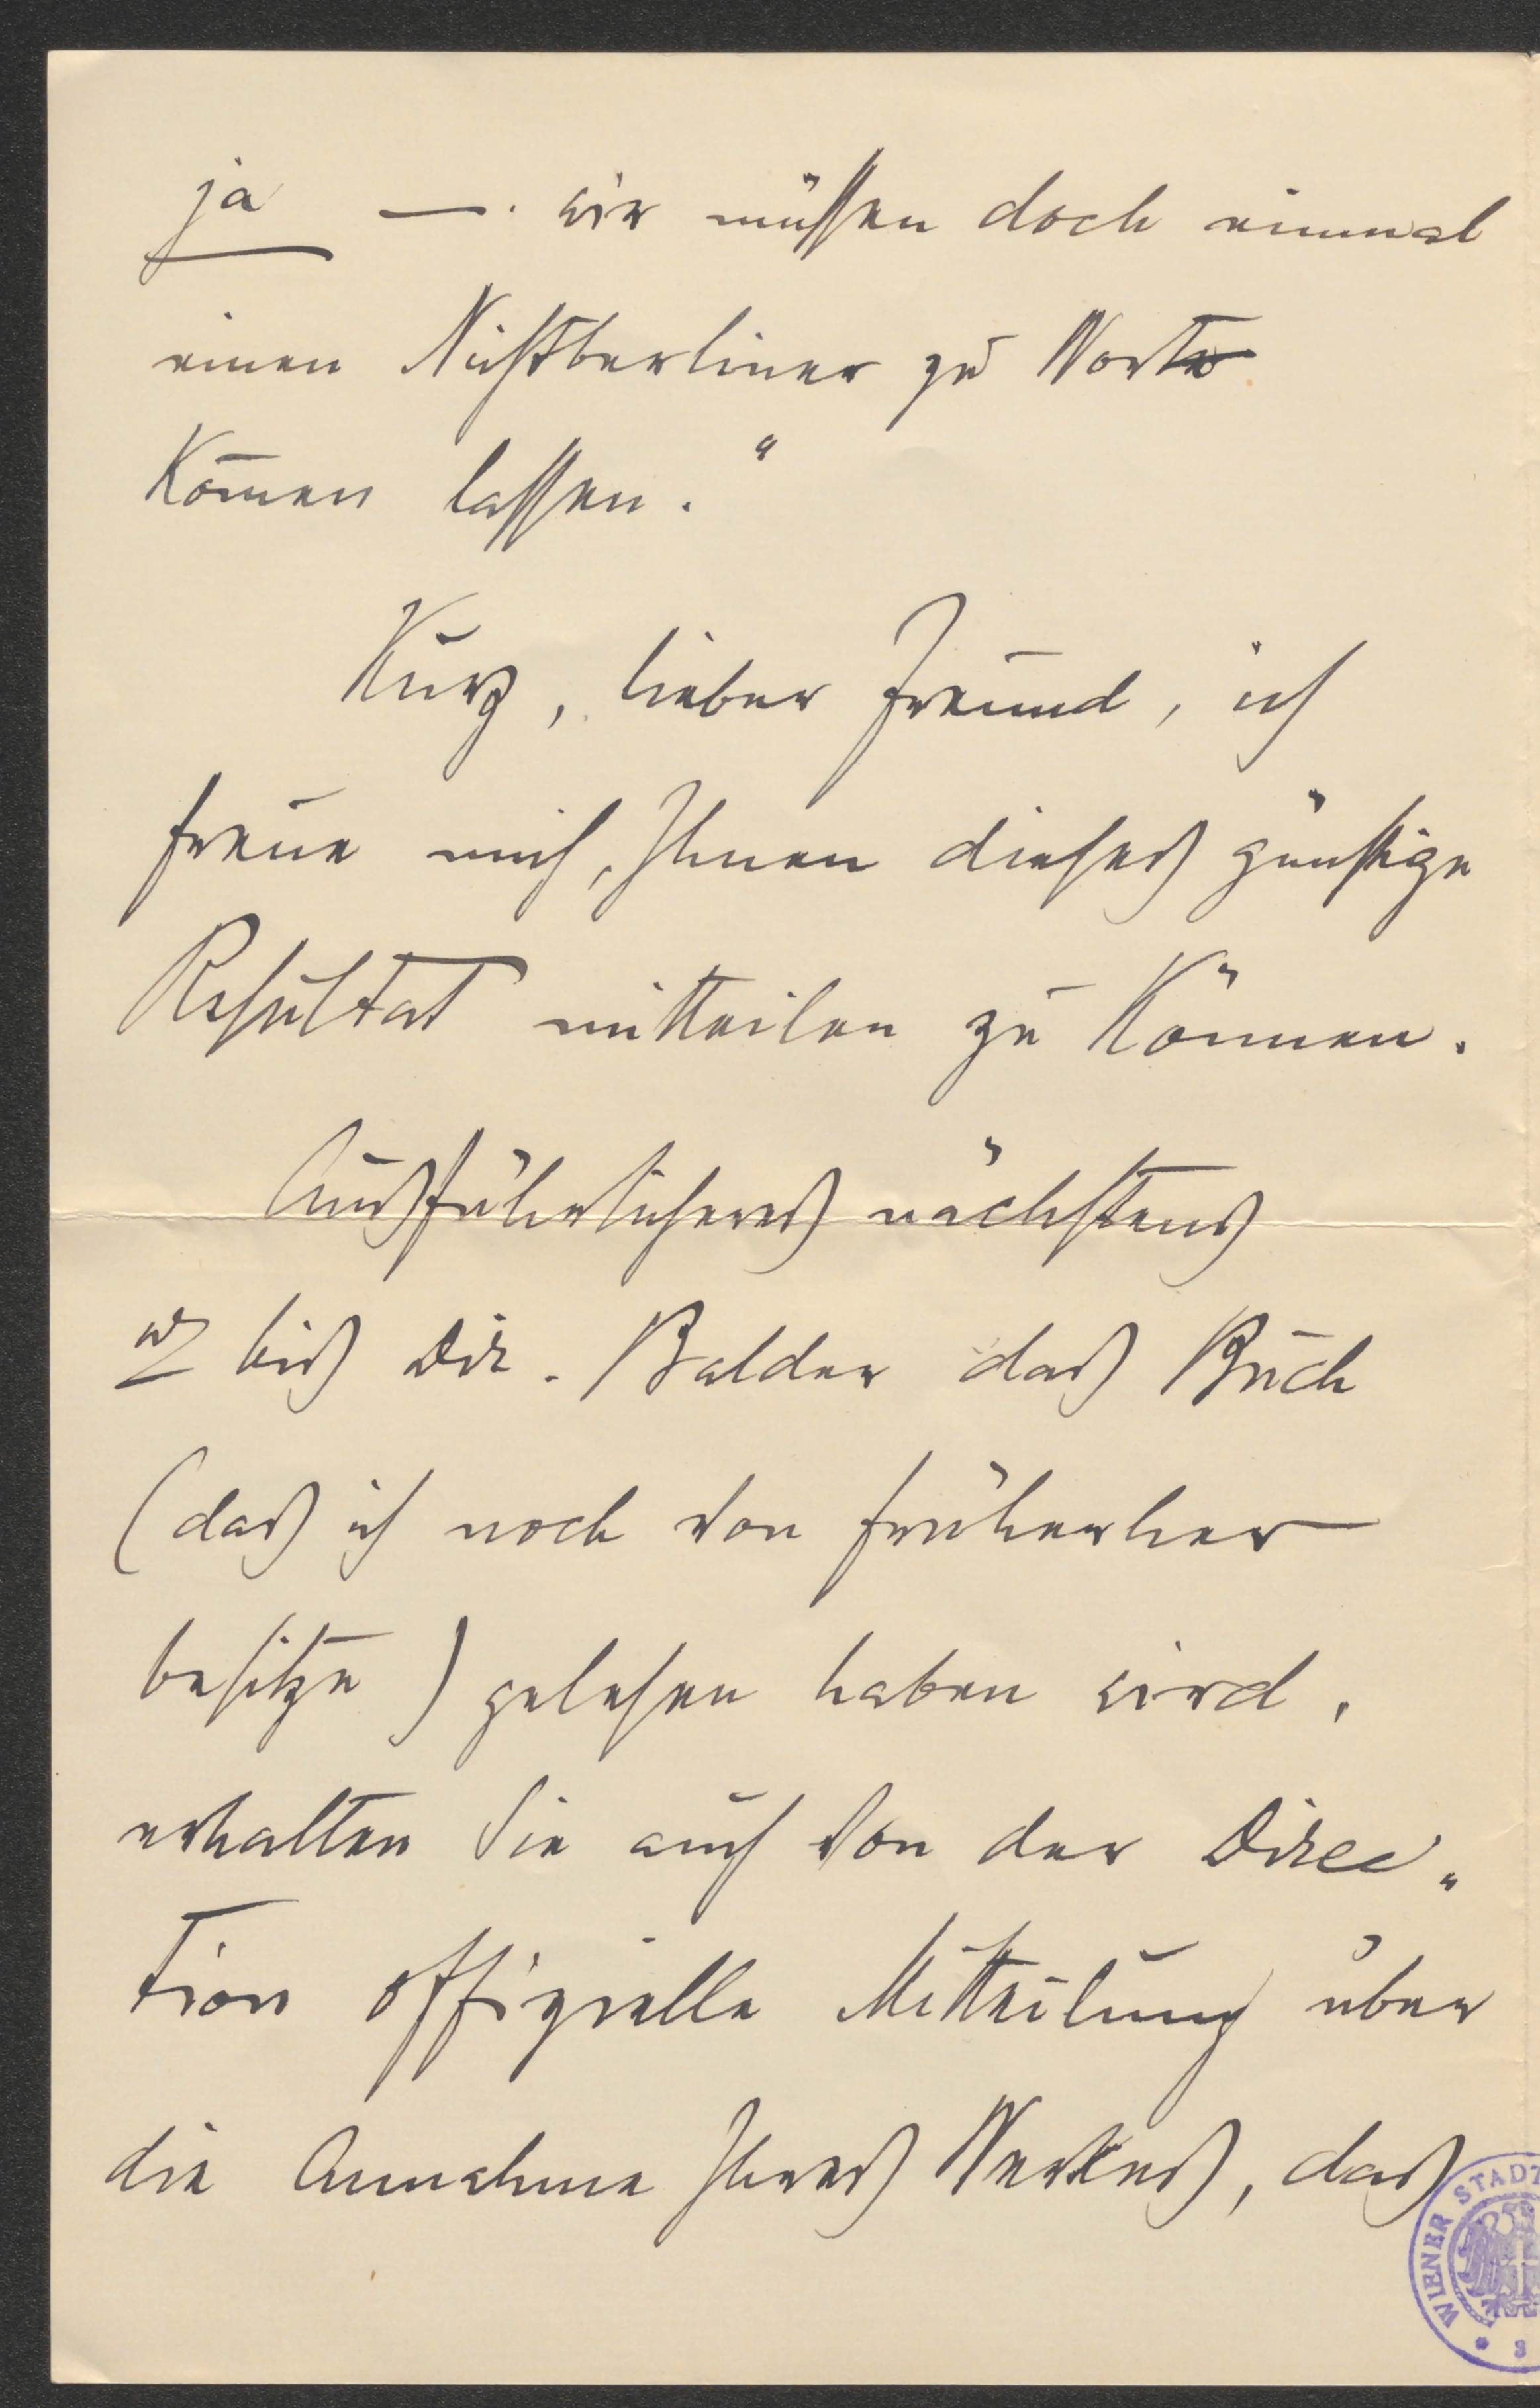 ja —. wir müssen doch einmal
einen Nichtberliner zu Wort
kom̄en lassen.“
Kurz, lieber Freund, ich
freue mich, Ihnen dieses günstige
Resultat mitteilen zu können.
Ausführlicheres nächstens
bis Dir. Balder das Buch
(das ich noch von früherher
besitze) gelesen haben wird,
erhalten Sie auch von der Direc„
tion offizielle Mitteilung über
die Annahme Ihres Werkes, das
WIENER STADT